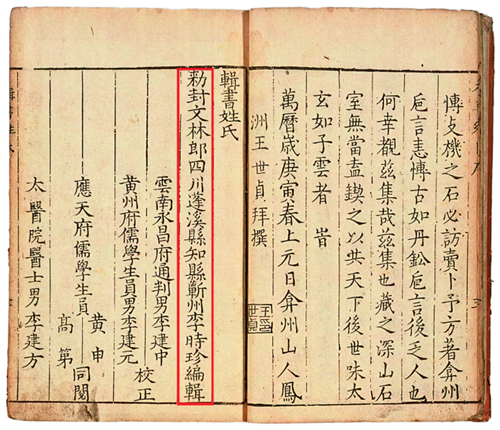 愽支機之石必訪賣卜予方著弇州
巵言恚愽古如丹鈆巵言後乏人也
何幸覩兹集哉兹集也藏之深山石
室無當盍鍥之以共天下後世味太
玄如子雲者 旹
萬曆嵗庚寅春上元日弇州山人鳳
洲王世貞拜撰
輯書姓氏
勑封文林郎四川蓬溪縣知縣蘄州李時珍編輯
雲南永昌府通判男李建中
黄州府儒學生員男李建元
校正
應天府儒學生員
黄申
高第
同閱
太醫院醫士男李建方